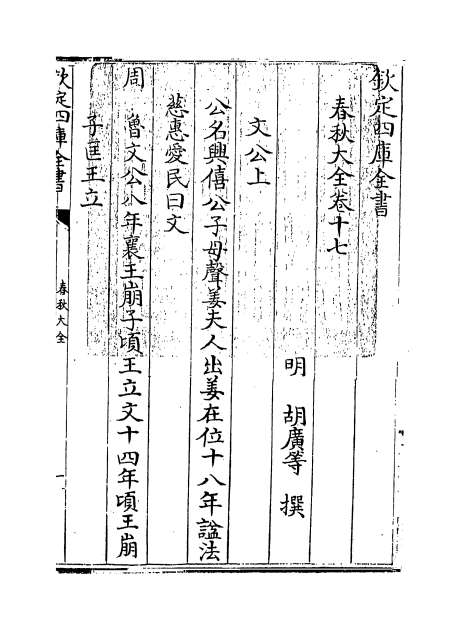 欽定四庫全書
春秋大全卷十七
明 胡廣等 撰
文公上
公名興僖公子母聲姜夫人出姜在位十八年諡法
慈惠愛民曰文
周 魯文公八年襄王崩子頃王立文十四年頃王崩
子匡王立
欽定四庫全書
春秋大全
一